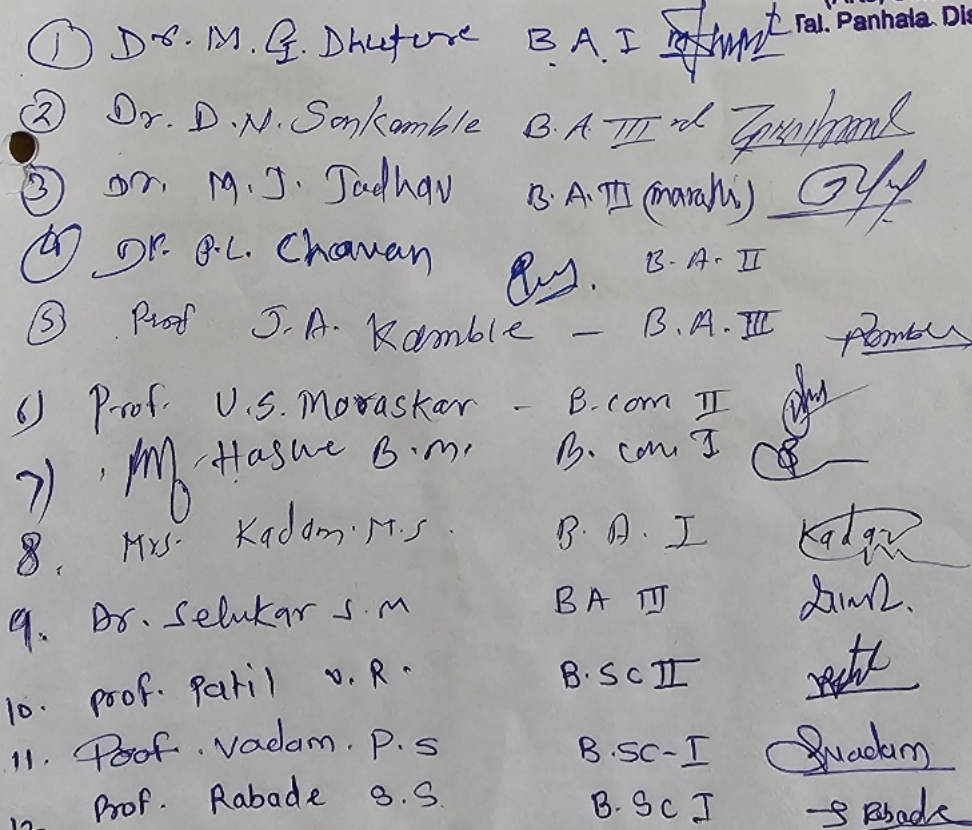 Tal. Panhala. Dis
① Dr. M. G. Dhuture B.A.I
② Dr. D.N. Sonkamble B.A. III rd
③ Dr. M. J. Jadhav B.A. III (marathi)
④ Dr. P.L. Chavan B.A. II
⑤ Prof J.A. Kamble - B.A. III
6) Prof. U.S. Moraskar - B.com II
7) Haswe B.M. B. com I
8. Mrs. Kadam. M.S. B.A. I Kadam
9. Dr. Selukar S.M BA III
10. prof. Patil V.R. B.Sc II
11. Prof. Vadam. P.S B.SC-I Vadam
Prof. Rabade S.S. B.Sc I Rabade